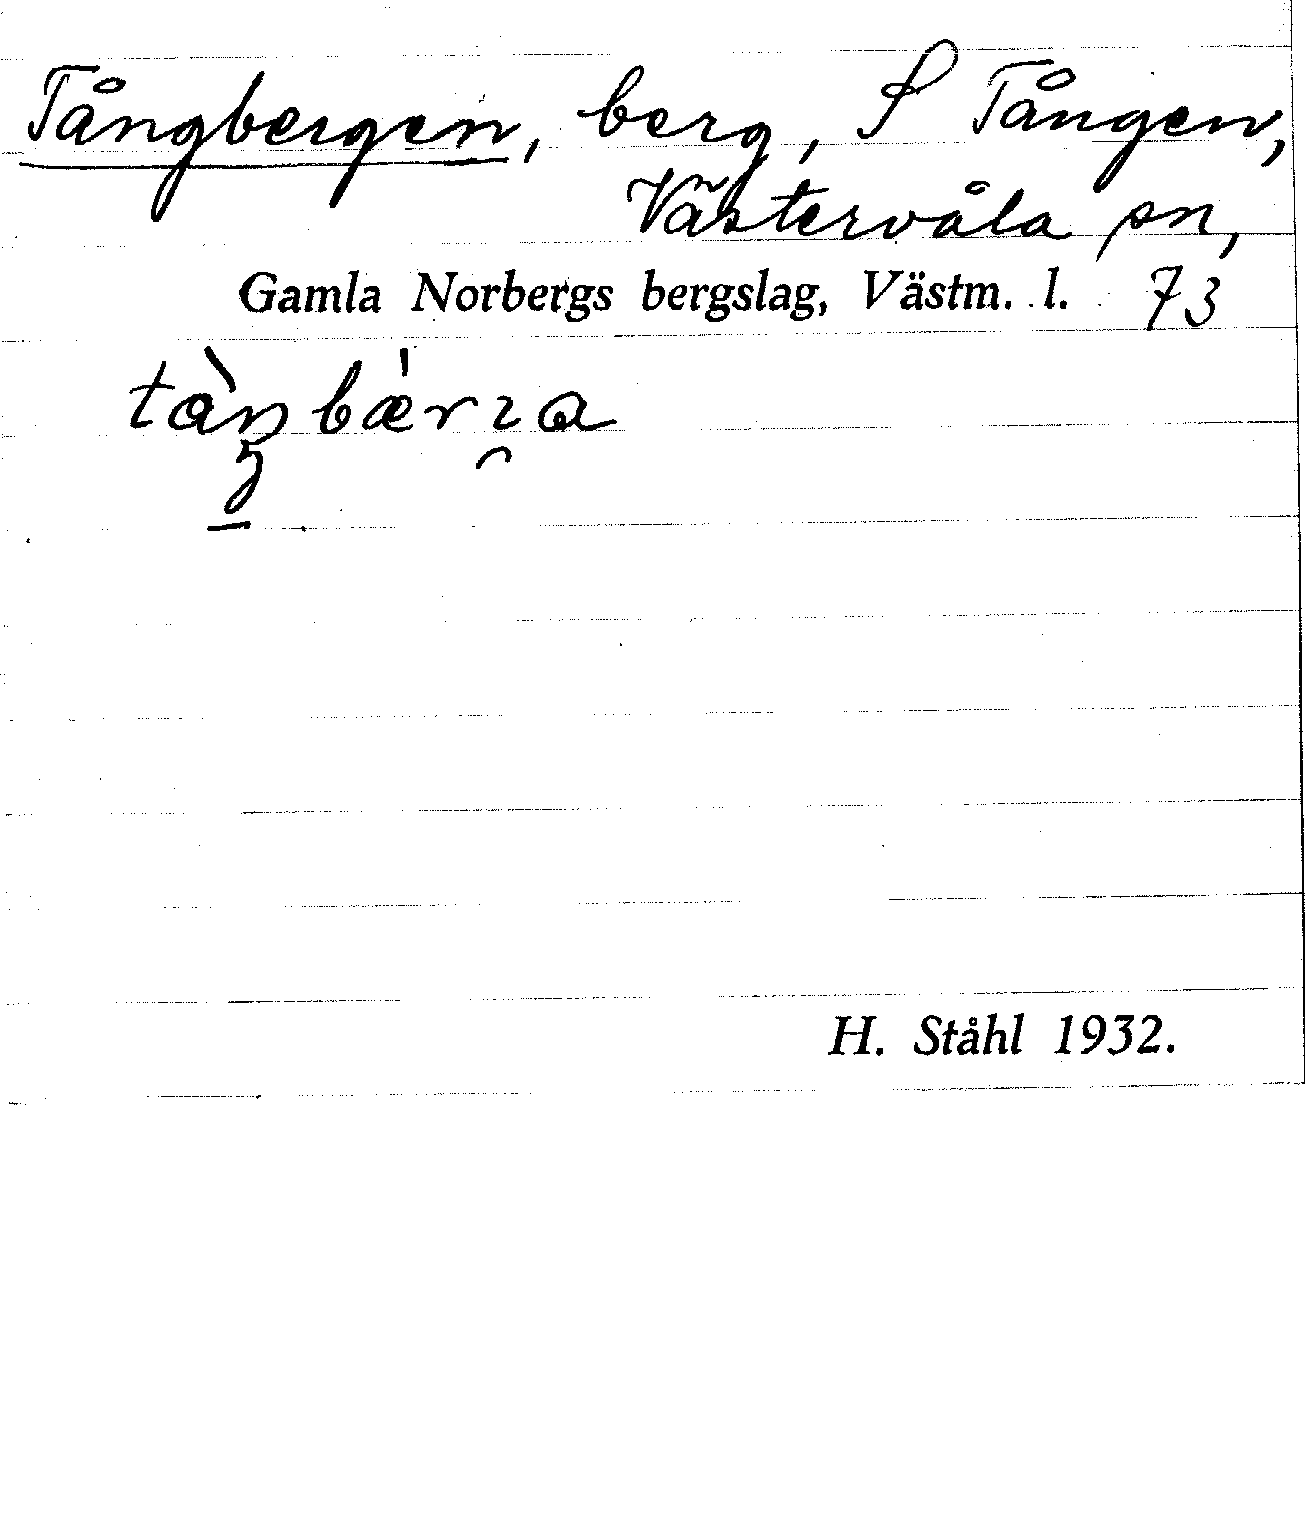 Tångbergen, berg, S Tången,
Västervåla sn,
Gamla Norbergs bergslag, Västm. l. 73
H. Ståhl 1932.